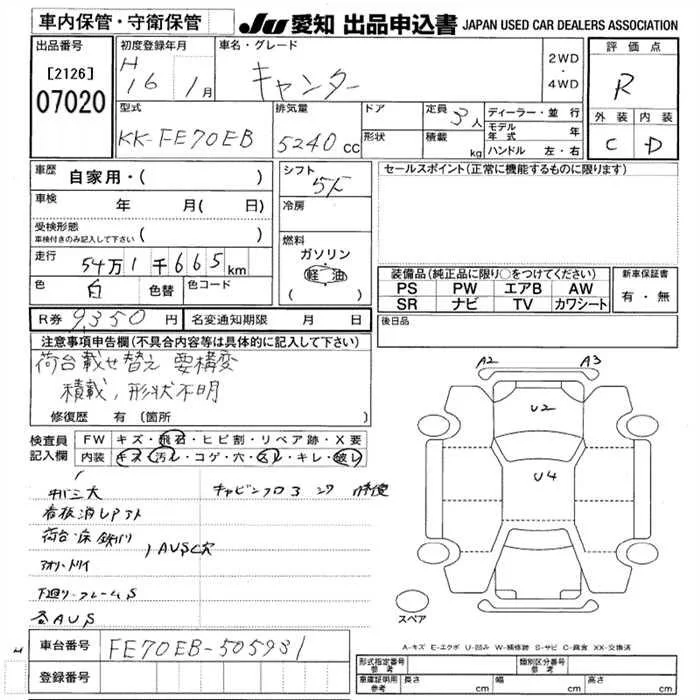 車内保管・守衛保管
JU 愛知 出品申込書 JAPAN USED CAR DEALERS ASSOCIATION
出品番号
[2126]
07020
初度登録年月
H 16 1月
車名・グレード
キャンター
2WD
・
4WD
評価点
R
外装 内装
C D
型式
KK-FE70EB
排気量
5240 cc
ドア
形状
定員 3人
積載 kg
ディーラー・並行
モデル年式 年
ハンドル 左・右
車歴 自家用・( )
車検 年 月( 日)
受検形態
車検付きのみ記入して下さい ( )
走行 54万1千665km
色 白 色替 色コード
R券 9,350円 名変通知期限 月 日
シフト
5F
冷房
燃料
ガソリン
軽油
( )
セールスポイント(正常に機能するものに限ります)
装備品(純正品に限り○をつけてください)
PS PW エアB AW
SR ナビ TV カワシート
新車保証書
有・無
後日品
注意事項申告欄(不具合内容等は具体的に記入して下さい)
荷台載せ替え 要構変
積載、形状不明
修復歴 有(箇所 )
検査員記入欄
FW キズ・飛石・ヒビ割・リペア跡・X要
内装 キズ・汚レ・コゲ・穴・スレ・キレ・破レ
看板消しアト
下廻り・フレームS
各AUS
A2 A3
U2
U4
スペア
A-キズ E-エクボ U-凹み W-補修跡 S-サビ C-腐食 XX-交換済
車台番号 FE70EB-505981
登録番号
形式指定番号 参考
類別区分番号 参考
車庫証明用 参考 長さ cm 幅 cm 高さ cm